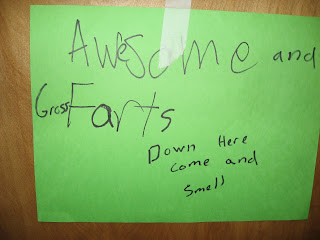 Awesome and
Gross Farts
Down Here
come and
smell